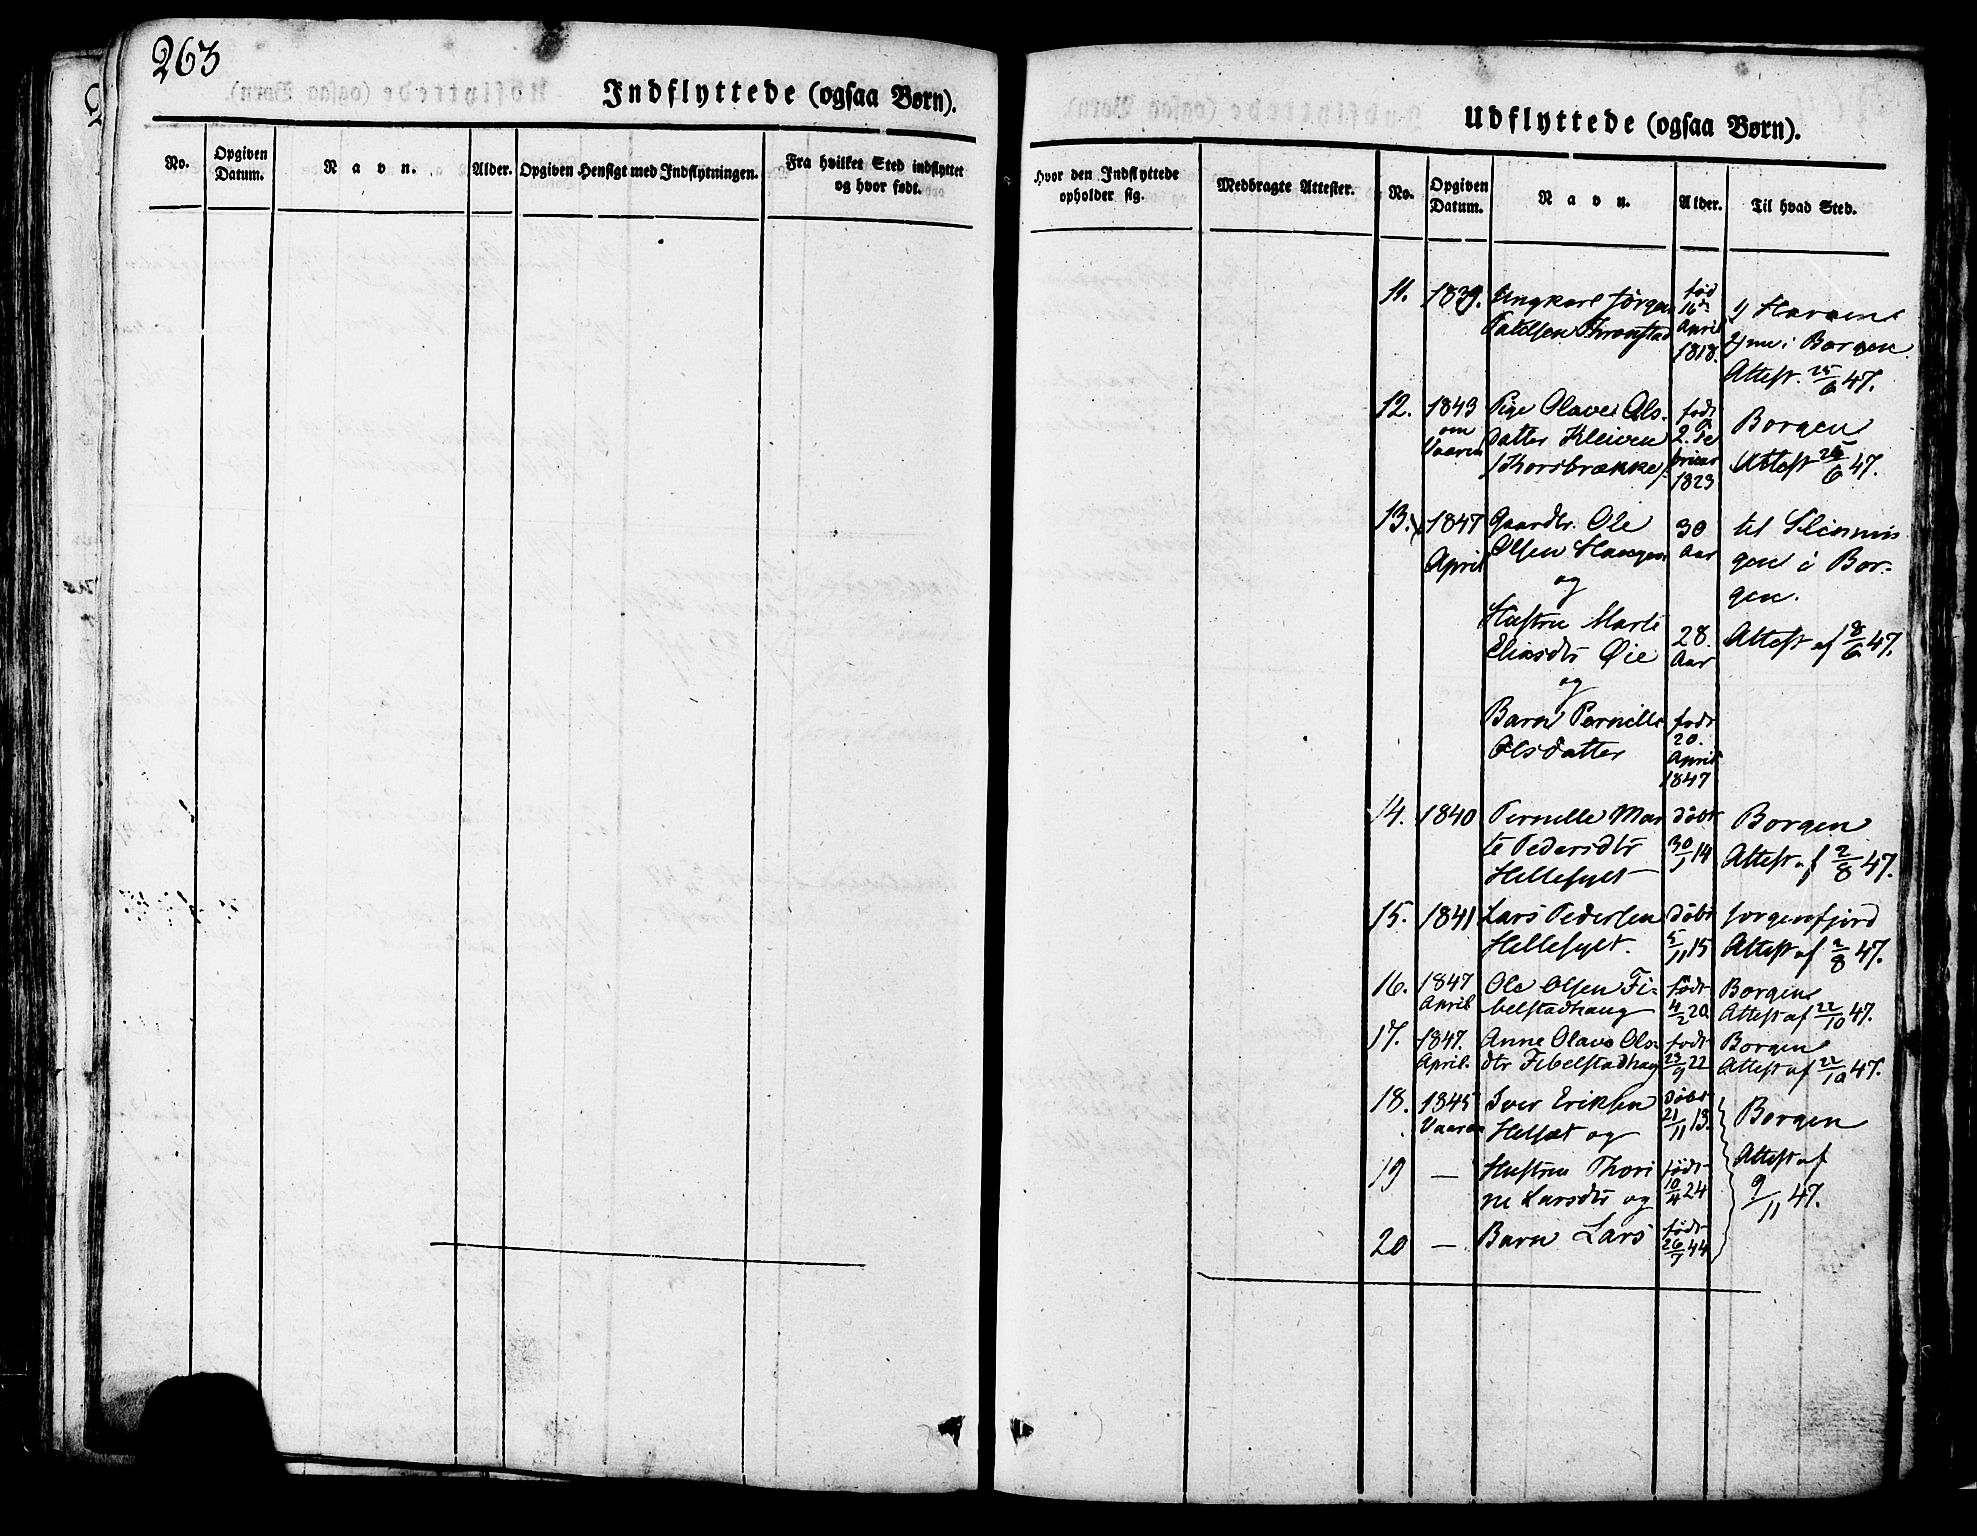 263
Indflyttede (ogsaa Børn).
No.
Opgiven Datum.
Navn.
Alder.
Opgiven Hensigt med Indflytningen.
Fra hvilket Sted indflyttet
og hvor født.
Udflyttede (ogsaa Børn).
Hvor den Indflyttede
opholder sig.
Medbragte Attester.
No.
Opgiven Datum.
Navn.
Alder.
Til hvad Sted.
11. 1839. Ungkarl Jørgen født
16de
Palesen Tronstad April
1818.
i Borgen
Attest. 25/6 47.
12. 1843 Pige Olave Ols- født
om Vaaren datter Kleiven 2. Fe
/Thorsbrække/ bruar
1823
Borgen
Attest 26/6 47.
13. 1847 Gaardbr. Ole 30 til
April Olsen Haugen Aar gen i Bor-
og gen.
Hustru Marte 28 Attest af 8/6 47.
Eliasdtr Øie Aar
og
Barn Pernille født
Olsdatter 20.
April
1847
14. 1840 Pernille Mar døbt Borgen
te Pedersdtr 30/1 14 Attest af 2/8 47.
Hellesylt
15. 1841 Lars Pedersen døbt Jørgensfjord
Hellesylt. 5/11 15 Attest af 2/8 47.
16. 1847 Ole Olsen Fi- født Borgen
April belstadhaug 4/2 20 Attest af 22/10 47.
17. 1847. Anne Olave Ols- født Borgen
April. dtr Fibelstadhaug 23/9 22 Attest af 22/10 47.
18. 1845 Iver Eriksen døbt Borgen
Vaaren Helsæt og 21/11 13.
19 — Hustru Thori født Attest af
ne Larsdtr og 10/4 24 9/11 47.
20 — Barn Lars født
26/7 44